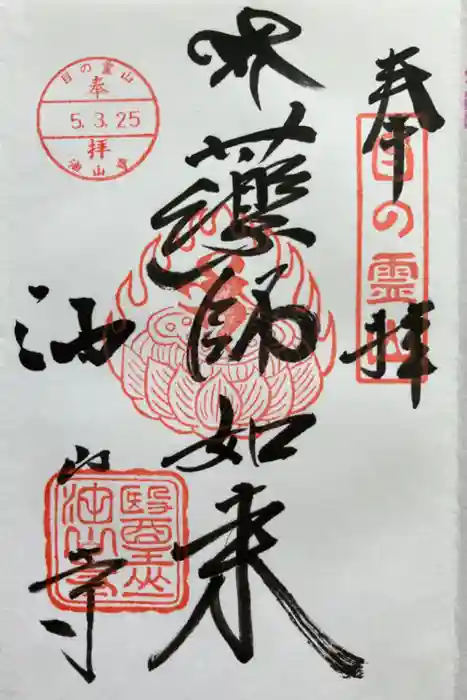 奉拝
目の霊山
藥師如来
油山寺
醫王山
油山寺
目の霊山
奉
5.3.25
拝
油山寺